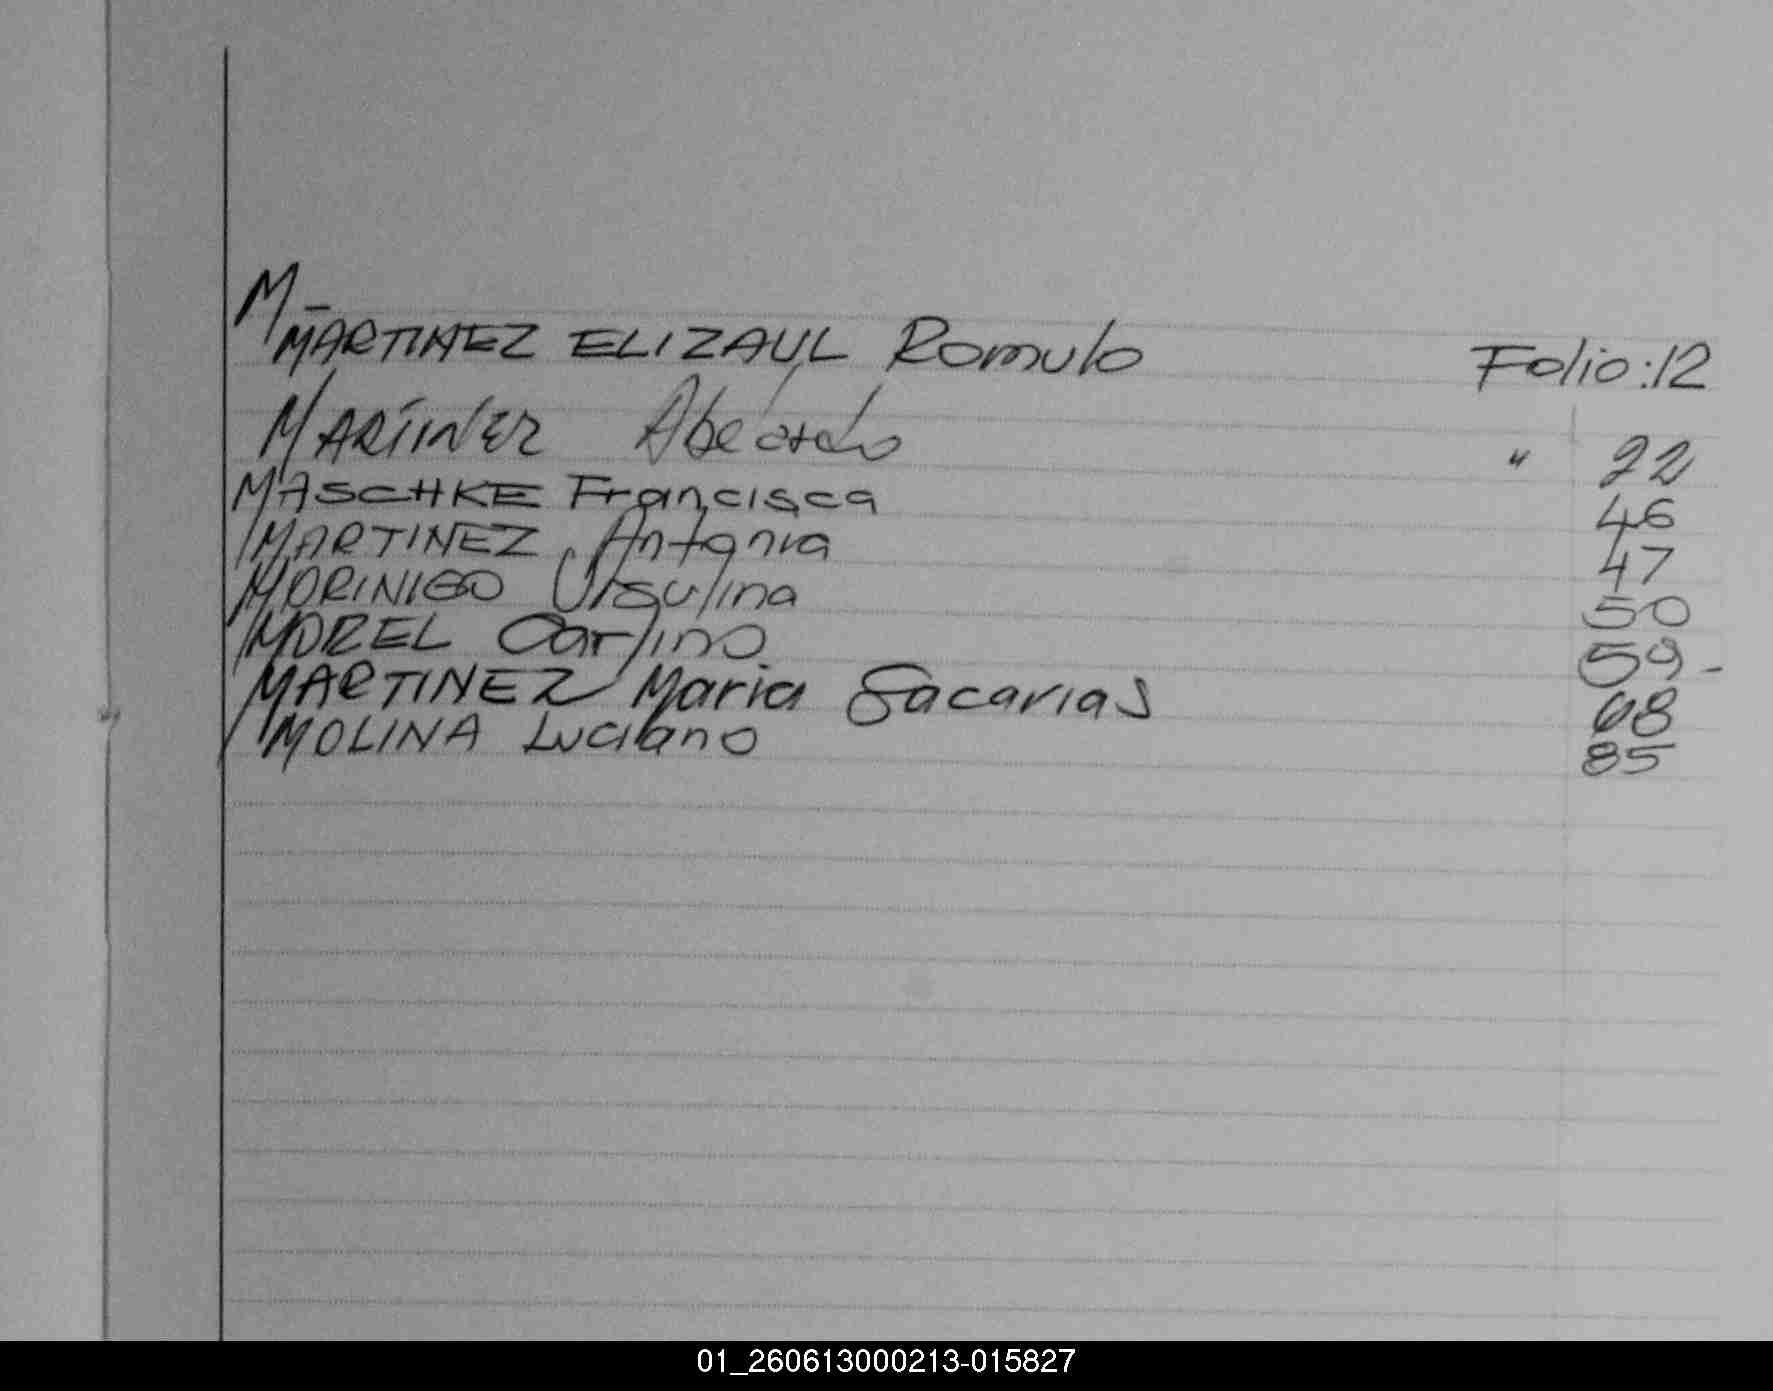 M-
MARTINEZ ELIZAUL Romulo Folio: 12
MARTINEZ Abelardo " 22
MASCHKE Francisca 46
MARTINEZ Antonia 47
MORINIGO Ursulina 50
MOREL Carlino 59-
MARTINEZ Maria Sacarias 68
MOLINA Luciano 85
01_260613000213-015827